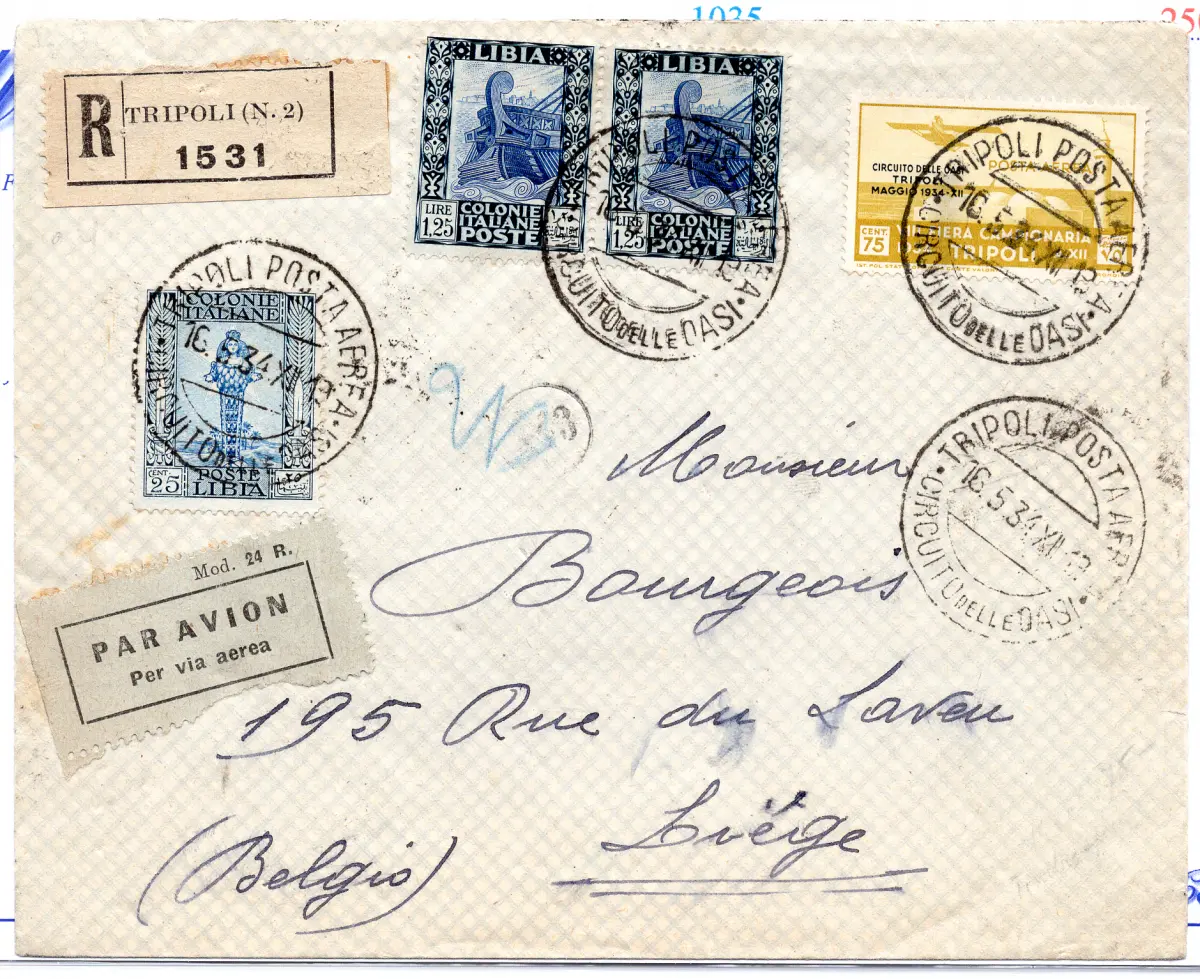 1035
250
R TRIPOLI (N. 2)
1531
LIBIA
LIRE 1,25
COLONIE ITALIANE
POSTE
LIBIA
LIRE 1,25
COLONIE ITALIANE
POSTE
POSTA AEREA
CIRCUITO DELLE OASI
TRIPOLI
MAGGIO 1934-XII
CENT. 75
FIERA CAMPIONARIA
TRIPOLI XII
TRIPOLI POSTA AEREA
16.5.34.XII 13
CIRCUITO DELLE OASI
TRIPOLI POSTA AEREA
16.5.34.XII 13
CIRCUITO DELLE OASI
COLONIE ITALIANE
CENT. 25
POSTE
LIBIA
TRIPOLI POSTA AEREA
16.5.34.XII 13
CIRCUITO DELLE OASI
TRIPOLI POSTA AEREA
16.5.34.XII 13
CIRCUITO DELLE OASI
Mod. 24 R.
PAR AVION
Per via aerea
Monsieur
Bourgeois
195 Rue du Laveu
Liége
(Belgio)